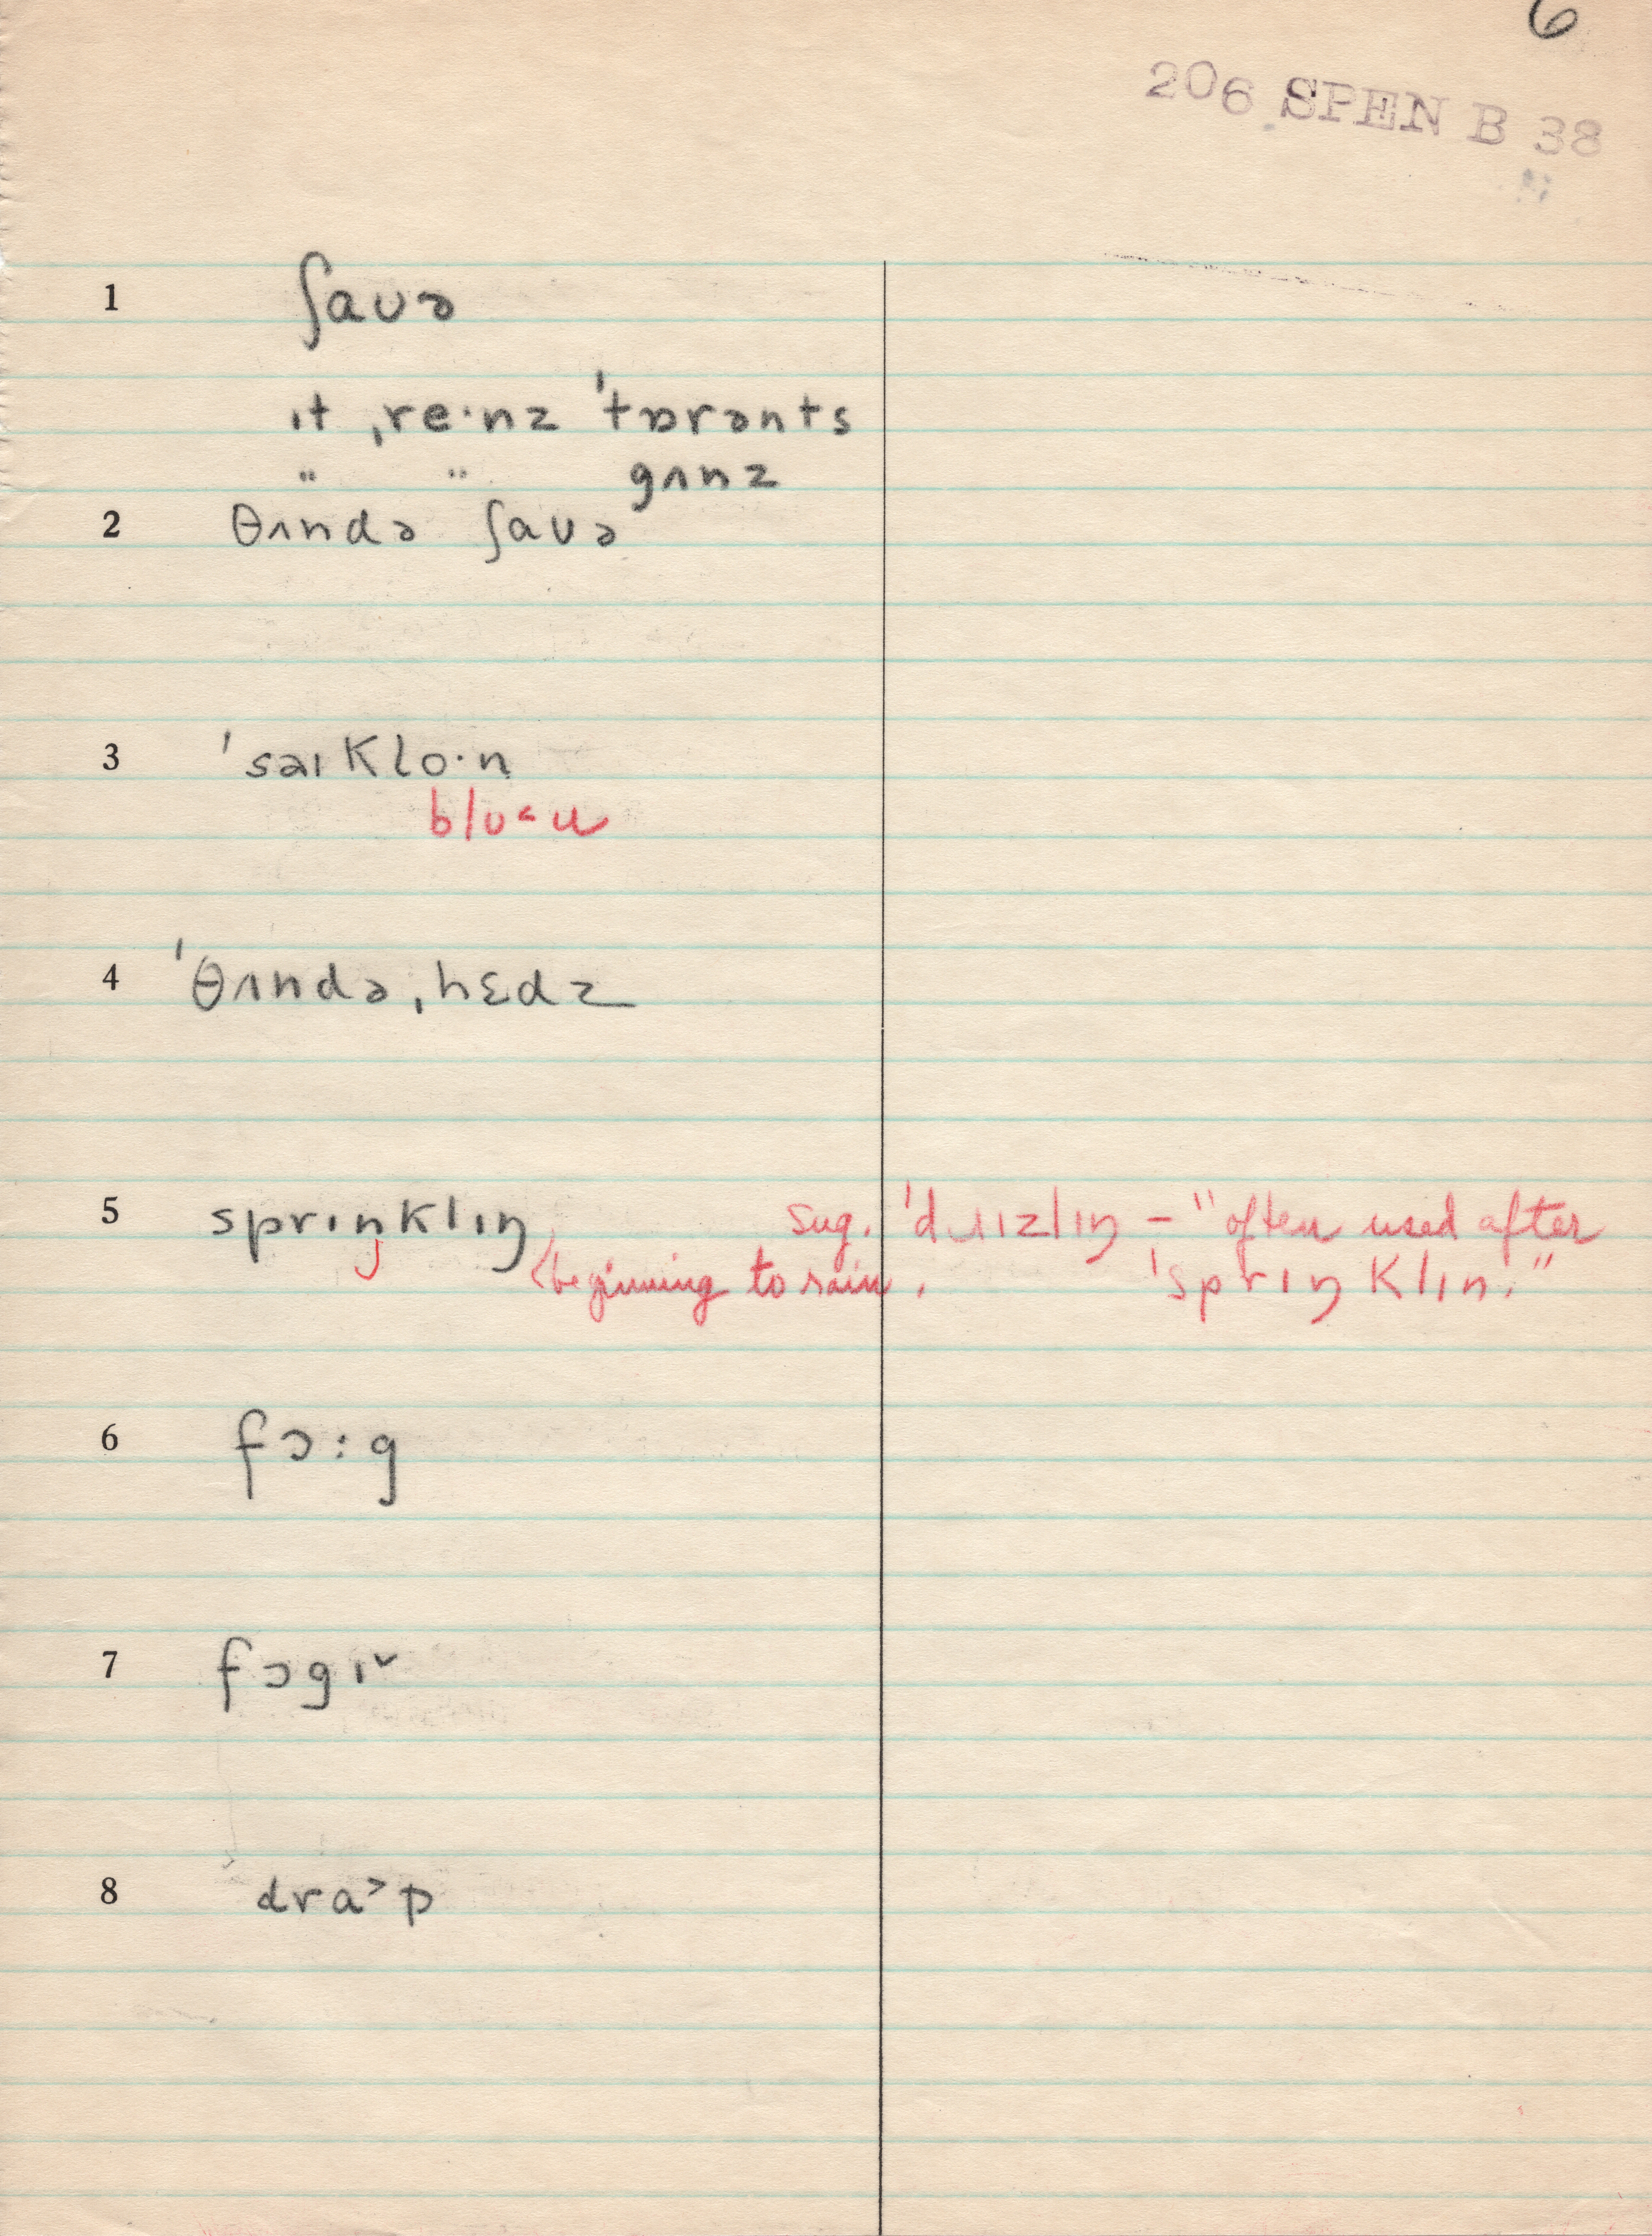 6
206 SPEN B 38
1 ʃaʊə
ɪt ˌre·nz ˈtɒrənts
" " gʌnz
2 θʌndə ʃaʊə
3 ˈsaɪklo·n
blʊ˂u
4 ˈθʌndəˌhɛdz
5 sprɪŋklɪŋ sug. ˈdɹɪzlɪŋ – "often used after
(beginning to rain. ˈsprɪŋklɪn."
6 fɔ:g
7 fɔgɪ˅
8 dra˃p